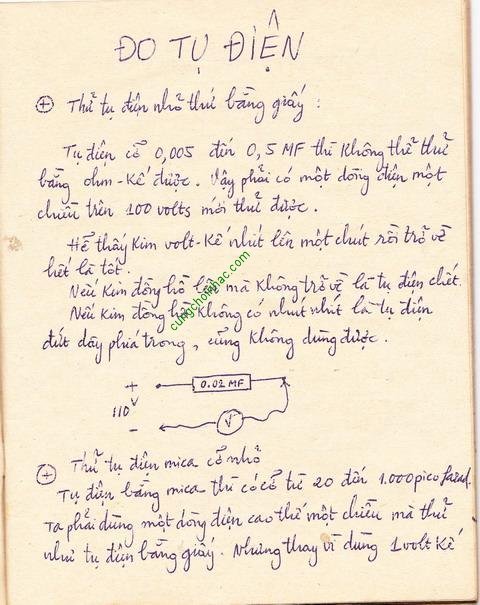 ĐO TỤ ĐIỆN
⊕ Thử tụ điện nhỏ thứ bằng giấy :
Tụ điện cỡ 0,005 đến 0,5 MF thì không thể thử
bằng ohm-kế được. Vậy phải có một dòng điện một
chiều trên 100 volts mới thử được.
Hễ thấy kim volt-kế nhít lên một chút rồi trở về
hết là tốt.
Nếu kim đồng hồ lên mà không trở về là tụ điện chết.
Nếu kim đồng hồ không có nhút nhít là tụ điện
đứt dây phía trong, cũng không dùng được.
cungchoinhac.com
+
0.02 MF
110V
-
V
⊕ Thử tụ điện mica cỡ nhỏ
Tụ điện bằng mica thì có cỡ từ 20 đến 1.000 pico farad.
Ta phải dùng một dòng điện cao thế một chiều mà thử
như tụ điện bằng giấy. Nhưng thay vì dùng 1 volt kế